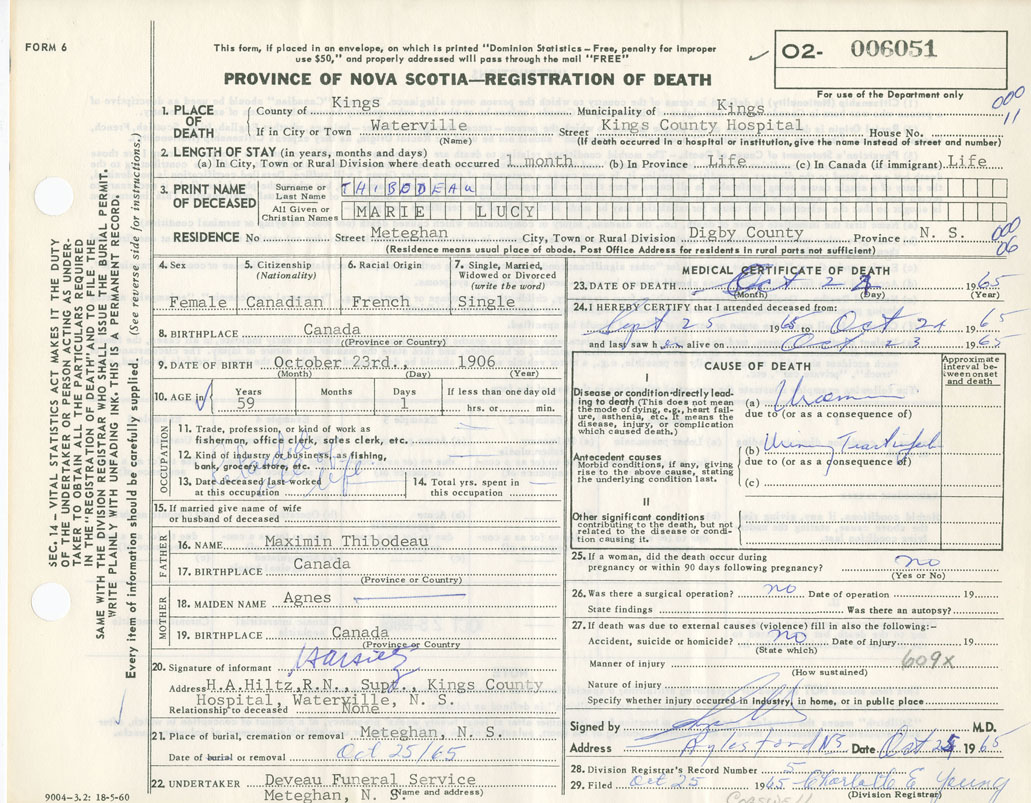 FORM 6
This form, if placed in an envelope, on which is printed "Dominion Statistics—Free, penalty for improper
use $50," and properly addressed will pass through the mail "FREE"
PROVINCE OF NOVA SCOTIA—REGISTRATION OF DEATH
O2- 006051
For use of the Department only
000
11
1. PLACE OF DEATH
County of Kings Municipality of Kings
If in City or Town Waterville Street Kings County Hospital House No.
(Name) (If death occurred in a hospital or institution, give the name instead of street and number)
2. LENGTH OF STAY (in years, months and days)
(a) In City, Town or Rural Division where death occurred 1 month (b) In Province Life (c) In Canada (if immigrant) Life
3. PRINT NAME OF DECEASED
Surname or Last Name THIBODEAU
All Given or Christian Names MARIE LUCY
RESIDENCE No Street Meteghan City, Town or Rural Division Digby County Province N. S.
000
06
(Residence means usual place of abode. Post Office Address for residents in rural parts not sufficient)
4. Sex
Female
5. Citizenship
(Nationality)
Canadian
6. Racial Origin
French
7. Single, Married,
Widowed or Divorced
(write the word)
Single
8. BIRTHPLACE Canada
(Province or Country)
9. DATE OF BIRTH October 23rd., 1906
(Month) (Day) (Year)
10. AGE in
Years Months Days If less than one day old
59 1 hrs. or min.
OCCUPATION
11. Trade, profession, or kind of work as
fisherman, office clerk, sales clerk, etc.
12. Kind of industry or business, as fishing,
bank, grocery store, etc.
13. Date deceased last worked
at this occupation
14. Total yrs. spent in
this occupation
15. If married give name of wife
or husband of deceased
FATHER
16. NAME Maximin Thibodeau
17. BIRTHPLACE Canada
(Province or Country)
MOTHER
18. MAIDEN NAME Agnes
19. BIRTHPLACE Canada
(Province or Country)
20. Signature of informant
Address H.A.Hiltz,R.N., Supt., Kings County
Hospital, Waterville, N. S.
Relationship to deceased None
21. Place of burial, cremation or removal Meteghan, N. S.
Date of burial or removal Oct 25/65
22. UNDERTAKER Deveau Funeral Service
Meteghan, N. S.
(Name and address)
9004-3.2: 18-5-60
MEDICAL CERTIFICATE OF DEATH
23. DATE OF DEATH Oct 24 1965
(Month) (Day) (Year)
24. I HEREBY CERTIFY that I attended deceased from:
Sept 25 1965 to Oct 24 1965
and last saw her alive on Oct 23 1965
CAUSE OF DEATH
Approximate interval between onset and death
I
Disease or condition directly leading to death (This does not mean the mode of dying, e.g., heart failure, asthenia, etc. It means the disease, injury, or complication which caused death.)
(a)
due to (or as a consequence of)
Antecedent causes
Morbid conditions, if any, giving rise to the above cause, stating the underlying condition last.
(b)
due to (or as a consequence of)
(c)
II
Other significant conditions
contributing to the death, but not related to the disease or condition causing it.
25. If a woman, did the death occur during
pregnancy or within 90 days following pregnancy? no
(Yes or No)
26. Was there a surgical operation? no Date of operation 19
State findings Was there an autopsy?
27. If death was due to external causes (violence) fill in also the following:—
Accident, suicide or homicide? no Date of injury 19
(State which)
Manner of injury 609x
(How sustained)
Nature of injury
Specify whether injury occurred in industry, in home, or in public place
Signed by M.D.
Address Aylesford NS Date Oct 25 1965
28. Division Registrar's Record Number 5
29. Filed Oct 25 1965 Charlotte E Young
(Division Registrar)
SEC. 14 – VITAL STATISTICS ACT MAKES IT THE DUTY
OF THE UNDERTAKER OR PERSON ACTING AS UNDER-
TAKER TO OBTAIN ALL THE PARTICULARS REQUIRED
IN THE "REGISTRATION OF DEATH" AND TO FILE THE
SAME WITH THE DIVISION REGISTRAR WHO SHALL ISSUE THE BURIAL PERMIT.
WRITE PLAINLY WITH UNFADING INK. THIS IS A PERMANENT RECORD.
Every item of information should be carefully supplied. (See reverse side for instructions.)